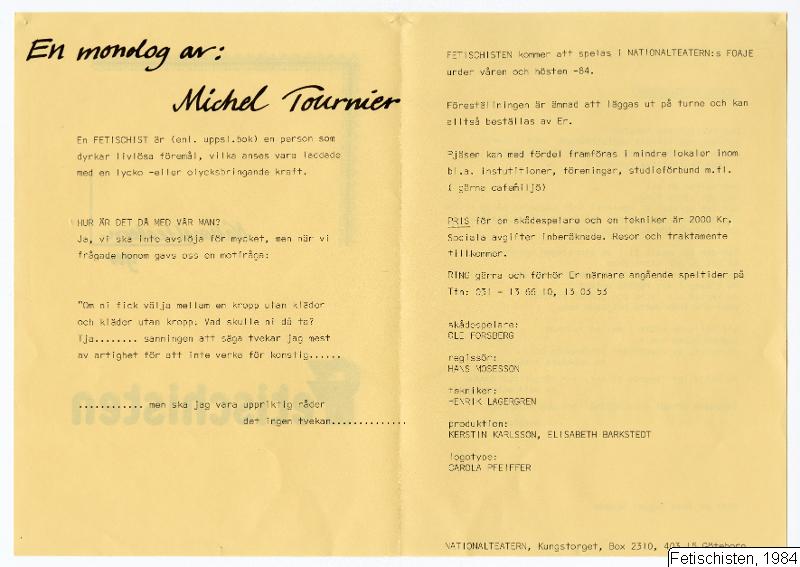 En monolog av:
Michel Tournier
En FETISCHIST är (enl. uppsl.bok) en person som
dyrkar livlösa föremål, vilka anses vara laddade
med en lycko -eller olycksbringande kraft.
HUR ÄR DET DÅ MED VÅR MAN?
Ja, vi ska inte avslöja för mycket, men när vi
frågade honom gavs oss en motfråga:
"Om ni fick välja mellan en kropp utan kläder
och kläder utan kropp. Vad skulle ni då ta?
Tja........ sanningen att säga tvekar jag mest
av artighet för att inte verka för konstig......
............ men ska jag vara uppriktig råder
det ingen tvekan..............
FETISCHISTEN kommer att spelas i NATIONALTEATERN:s FOAJE
under våren och hösten -84.
Föreställningen är ämnad att läggas ut på turne och kan
alltså beställas av Er.
Pjäsen kan med fördel framföras i mindre lokaler inom
bl.a. institutioner, föreningar, studieförbund m.fl.
( gärna cafemiljö)
PRIS för en skådespelare och en tekniker är 2000 Kr,
Sociala avgifter inberäknade. Resor och traktamente
tillkommer.
RING gärna och förhör Er närmare angående speltider på
Tfn: 031 - 13 66 10, 13 03 53
skådespelare:
OLE FORSBERG
regissör:
HANS MOSESSON
tekniker:
HENRIK LAGERGREN
produktion:
KERSTIN KARLSSON, ELISABETH BARKSTEDT
logotype:
CAROLA PFEIFFER
NATIONALTEATERN, Kungstorget, Box 2310, 403 15 Göteborg
Fetischisten, 1984